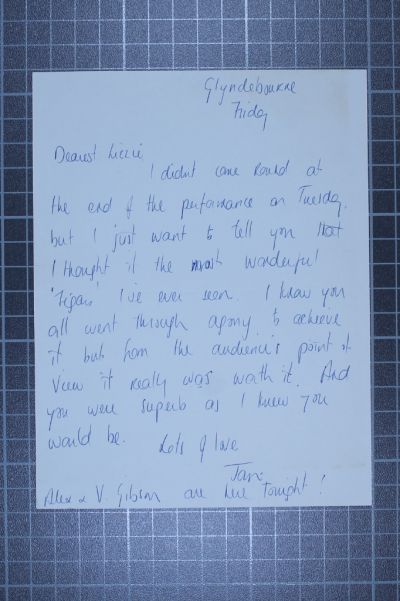 Glyndebourne
Friday
Dearest Lizzie
I didnt come round at
the end of the performance on Tuesday,
but I just want to tell you that
I thought it the most wonderful
'Figaro' I've ever seen. I know you
all went through agony to achieve
it but from the audience's point of
view it really was worth it. And
you were superb as I knew you
would be.
Lots of love
Jani
Alex & V. Gibson are here tonight!